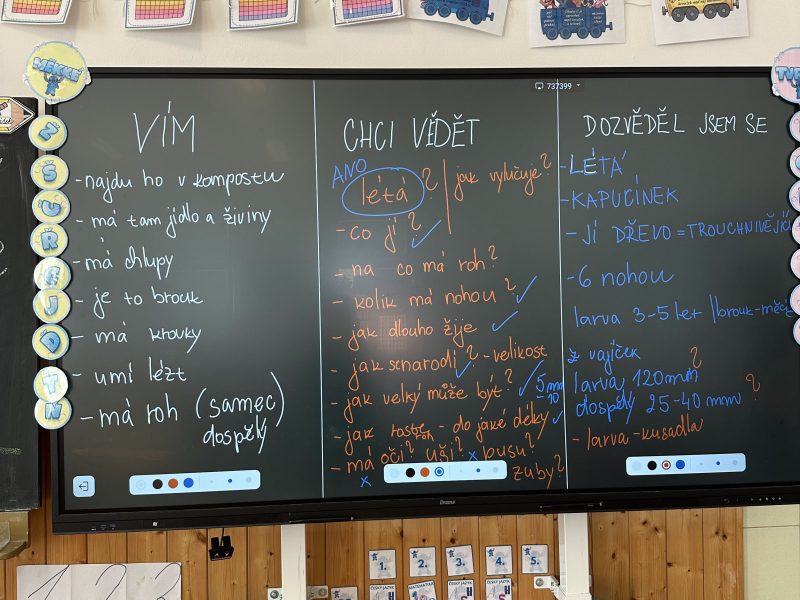 737399
MĚKKÉ
Ž
Š
Ř
J
Ď
Ť
Ň
VÍM
- najdu ho v kompostu
- má tam jídlo a živiny
- má chlupy
- je to brouk
- má krovky
- umí lézt
- má roh (samec)
dospělý
CHCI VĚDĚT
ANO
létá?
jak vylučuje?
- co jí?
- na co má roh?
- kolik má nohou?
- jak dlouho žije
- jak se narodí? - velikost
- jak velký může být?
5 mm
10
- jak roste roh - do jaké délky
- má oči? uši? x pusu?
x
zuby?
DOZVĚDĚL JSEM SE
- LÉTÁ
- KAPUCÍNEK
- JÍ DŘEVO = TROUCHNIVĚJÍCÍ
- 6 nohou
larva 3-5 let | brouk-
z vajíček
larva 120mm?
dospělý 25-40 mm?
- larva - kusadla
iiyama
1 2 3
1.
2.
3.
4.
5.
MATEMATIKA
ČESKÝ JAZYK
ČESKÝ JAZYK